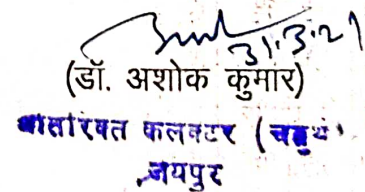 31.3.21
(डॉ. अशोक कुमार)
अतिरिक्त कलक्टर (चतुर्थ)
जयपुर